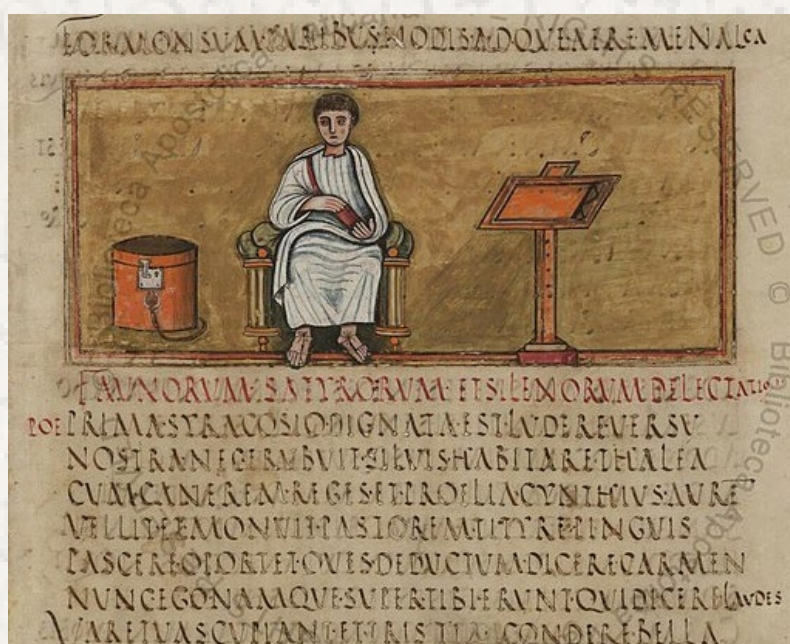 FORMONSUM·PARIBUS·NODIS·ADQVE·AERE·MENALCA
FAVNORVM·SATYRORVM·ET·SILENORVM·DELECTATIO
POE PRIMA·SYRACOSIO·DIGNATA·EST·LVDERE·VERSV
NOSTRA·NEC·ERVBVIT·SILVIS·HABITARE·THALEA
CVM·CANEREM·REGES·ET·PROELIA·CYNTHIVS·AVRE
VELLIT·ET·ADMONVIT·PASTOREM·TITYRE·PINGVIS
PASCERE·OPORTET·OVES·DEDVCTVM·DICERE·CARMEN
NVNC·EGO·NAMQVE·SVPER·TIBI·ERVNT·QVI·DICERE·LAVDES
VARE·TVAS·CVPIANT·ET·TRISTIA·CONDERE·BELLA
RESERVED © Biblioteca Apostolica